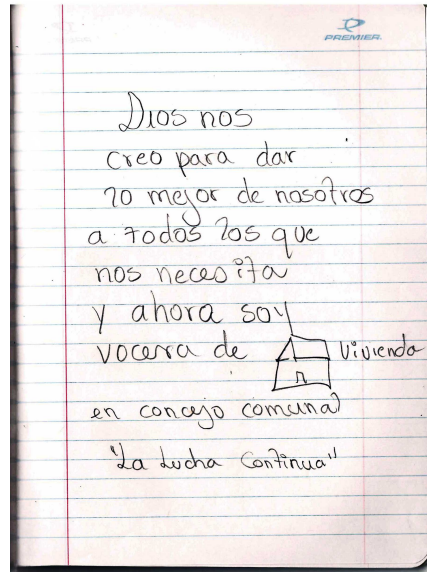 PREMIER
Dios nos
creo para dar
lo mejor de nosotros
a todos los que
nos necesita
y ahora soy
vocera de Vivienda
en concejo comunal
"La Lucha Continua"